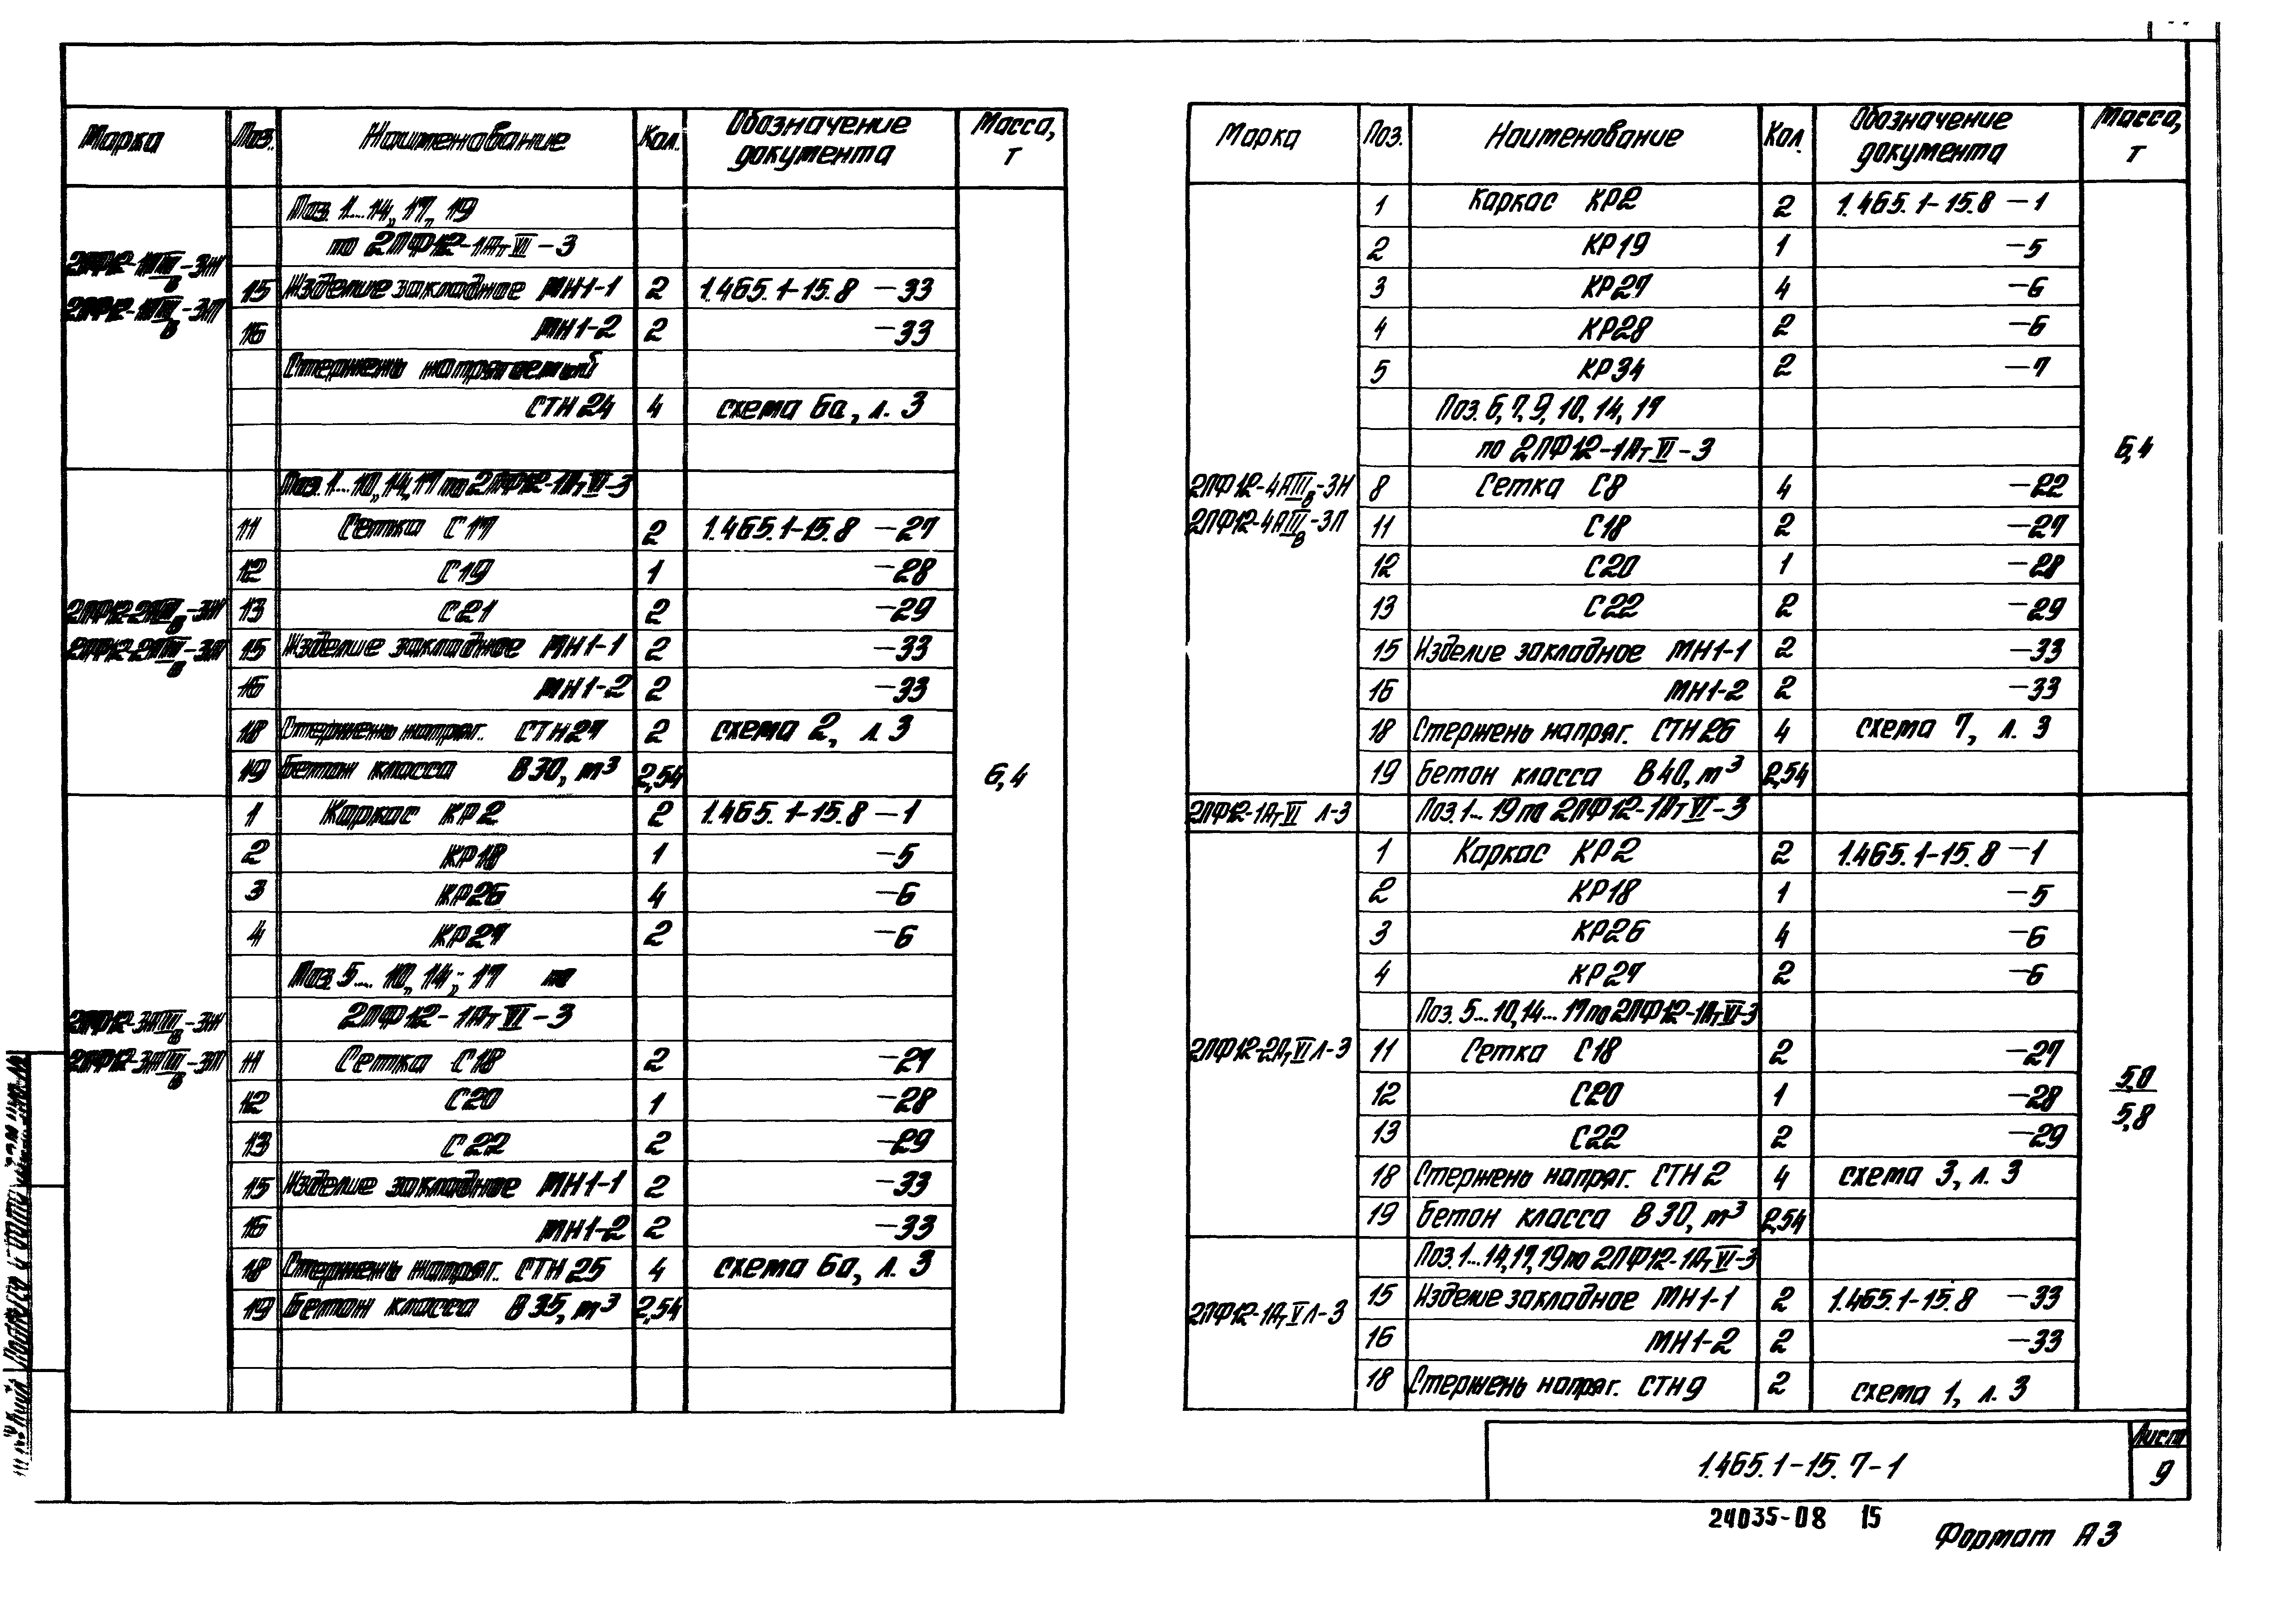 Марка Поз. Наименование Кол. Обозначение документа Масса, т
Поз. 1...14, 17, 19
по 2ПФ12-1АтVI-3
2ПФ12-1АIIIв-3Н
2ПФ12-1АIIIв-3П
15 Изделие закладное МН1-1 2 1.465.1-15.8 -33
16 МН1-2 2 -33
Стержень напрягаемый
СТН24 4 схема 6а, л. 3
Поз. 1...10, 14, 17 по 2ПФ12-1АтVI-3
11 Сетка С17 2 1.465.1-15.8 -27
12 С19 1 -28
2ПФ12-2АIIIв-3Н
13 С21 2 -29
2ПФ12-2АIIIв-3П
15 Изделие закладное МН1-1 2 -33
16 МН1-2 2 -33
18 Стержень напряг. СТН27 2 схема 2, л. 3
19 Бетон класса В30, м³ 2,54
6,4
1 Каркас КР2 2 1.465.1-15.8 -1
2 КР18 1 -5
3 КР26 4 -6
4 КР27 2 -6
Поз. 5... 10, 14; 17 по
2ПФ12-1АтVI-3
2ПФ12-3АIIIв-3Н
2ПФ12-3АIIIв-3П
11 Сетка С18 2 -27
12 С20 1 -28
13 С22 2 -29
15 Изделие закладное МН1-1 2 -33
16 МН1-2 2 -33
18 Стержень напряг. СТН25 4 схема 6а, л. 3
19 Бетон класса В35, м³ 2,54
Марка Поз. Наименование Кол. Обозначение документа Масса, т
1 Каркас КР2 2 1.465.1-15.8 -1
2 КР19 1 -5
3 КР27 4 -6
4 КР28 2 -6
5 КР34 2 -7
Поз. 6, 7, 9, 10, 14, 17
по 2ПФ12-1АтVI-3
6,4
2ПФ12-4АIIIв-3Н
8 Сетка С8 4 -22
2ПФ12-4АIIIв-3П
11 С18 2 -27
12 С20 1 -28
13 С22 2 -29
15 Изделие закладное МН1-1 2 -33
16 МН1-2 2 -33
18 Стержень напряг. СТН26 4 схема 7, л. 3
19 Бетон класса В40, м³ 2,54
2ПФ12-1АтVI Л-3 Поз. 1... 19 по 2ПФ12-1АтVI-3
1 Каркас КР2 2 1.465.1-15.8 -1
2 КР18 1 -5
3 КР26 4 -6
4 КР27 2 -6
Поз. 5...10, 14... 17 по 2ПФ12-1АтVI-3
2ПФ12-2АтVI Л-3
11 Сетка С18 2 -27
12 С20 1 -28
5,0
5,8
13 С22 2 -29
18 Стержень напряг. СТН2 4 схема 3, л. 3
19 Бетон класса В30, м³ 2,54
Поз. 1...14, 17, 19 по 2ПФ12-1АтVI-3
15 Изделие закладное МН1-1 2 1.465.1-15.8 -33
2ПФ12-1АтV Л-3
16 МН1-2 2 -33
18 Стержень напряг. СТН9 2 схема 1, л. 3
1.465.1-15.7-1
Лист
9
24035-08 15
Формат А3